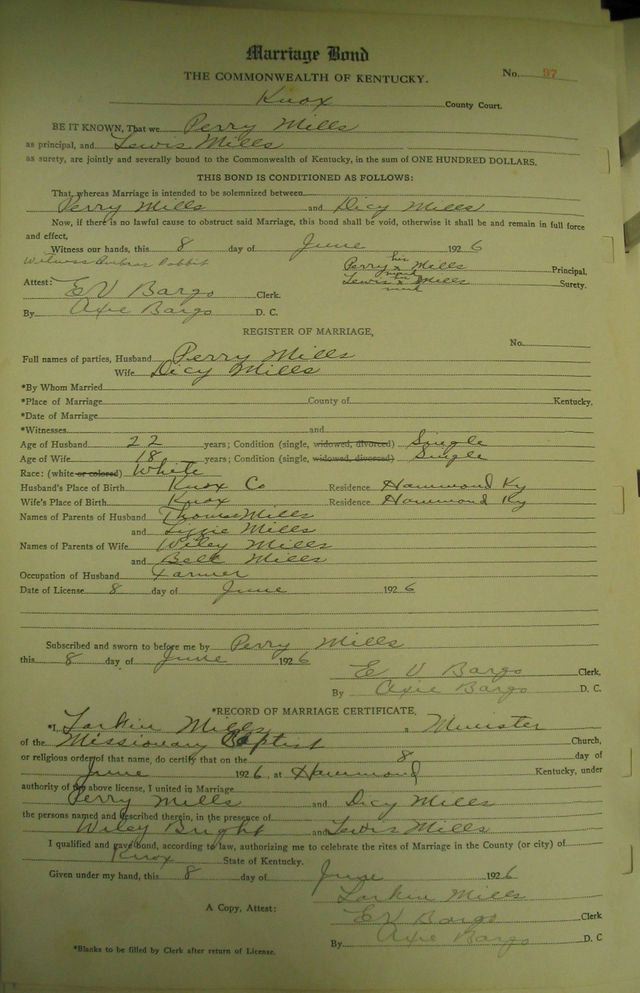 Marriage Bond
THE COMMONWEALTH OF KENTUCKY.
No. 97
Knox County Court.
BE IT KNOWN, That we Perry Mills
as principal, and Lewis Mills
as surety, are jointly and severally bound to the Commonwealth of Kentucky, in the sum of ONE HUNDRED DOLLARS.
THIS BOND IS CONDITIONED AS FOLLOWS:
That whereas Marriage is intended to be solemnized between
Perry Mills and Dicy Mills
Now, if there is no lawful cause to obstruct said Marriage, this bond shall be void, otherwise it shall be and remain in full force
and effect,
Witness our hands, this 8 day of June 1926
Witness
Perry his x mark Mills Principal,
Lewis his x mark Mills Surety.
Attest: E V Bargo Clerk.
By Axie Bargo D. C.
REGISTER OF MARRIAGE,
No.
Full names of parties, Husband Perry Mills
Wife Dicy Mills
*By Whom Married
*Place of Marriage County of Kentucky,
*Date of Marriage
*Witnesses and
Age of Husband 22 years; Condition (single, widowed, divorced) Single
Age of Wife 18 years; Condition (single, widowed, divorced) Single
Race: (white or colored) White
Husband's Place of Birth Knox Co Residence Hammond Ky
Wife's Place of Birth Knox Residence Hammond Ky
Names of Parents of Husband Thomas Mills
and Lizzie Mills
Names of Parents of Wife Wiley Mills
and Bell Mills
Occupation of Husband Farmer
Date of License 8 day of June 1926
Subscribed and sworn to before me by Perry Mills
this 8 day of June 1926
E V Bargo Clerk.
By Axie Bargo D. C.
*RECORD OF MARRIAGE CERTIFICATE,
*I, Larkin Mills a Minister
of the Missionary Baptist Church,
or religious order of that name, do certify that on the 8 day of
June 1926, at Hammond Kentucky, under
authority of the above license, I united in Marriage
Perry Mills and Dicy Mills
the persons named and described therein, in the presence of
Wiley Bright and Lewis Mills
I qualified and gave bond, according to law, authorizing me to celebrate the rites of Marriage in the County (or city) of
Knox State of Kentucky.
Given under my hand, this 8 day of June 1926
Larkin Mills
A Copy, Attest: E V Bargo Clerk
By Axie Bargo D. C
*Blanks to be filled by Clerk after return of License.